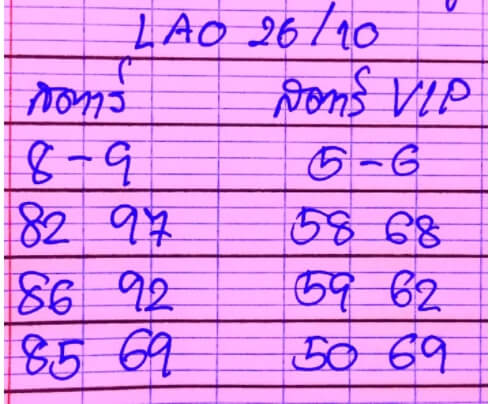 LAO 26/10
สตาร์ สตาร์ VIP
8-9 5-6
82 97 58 68
86 92 59 62
85 69 50 69